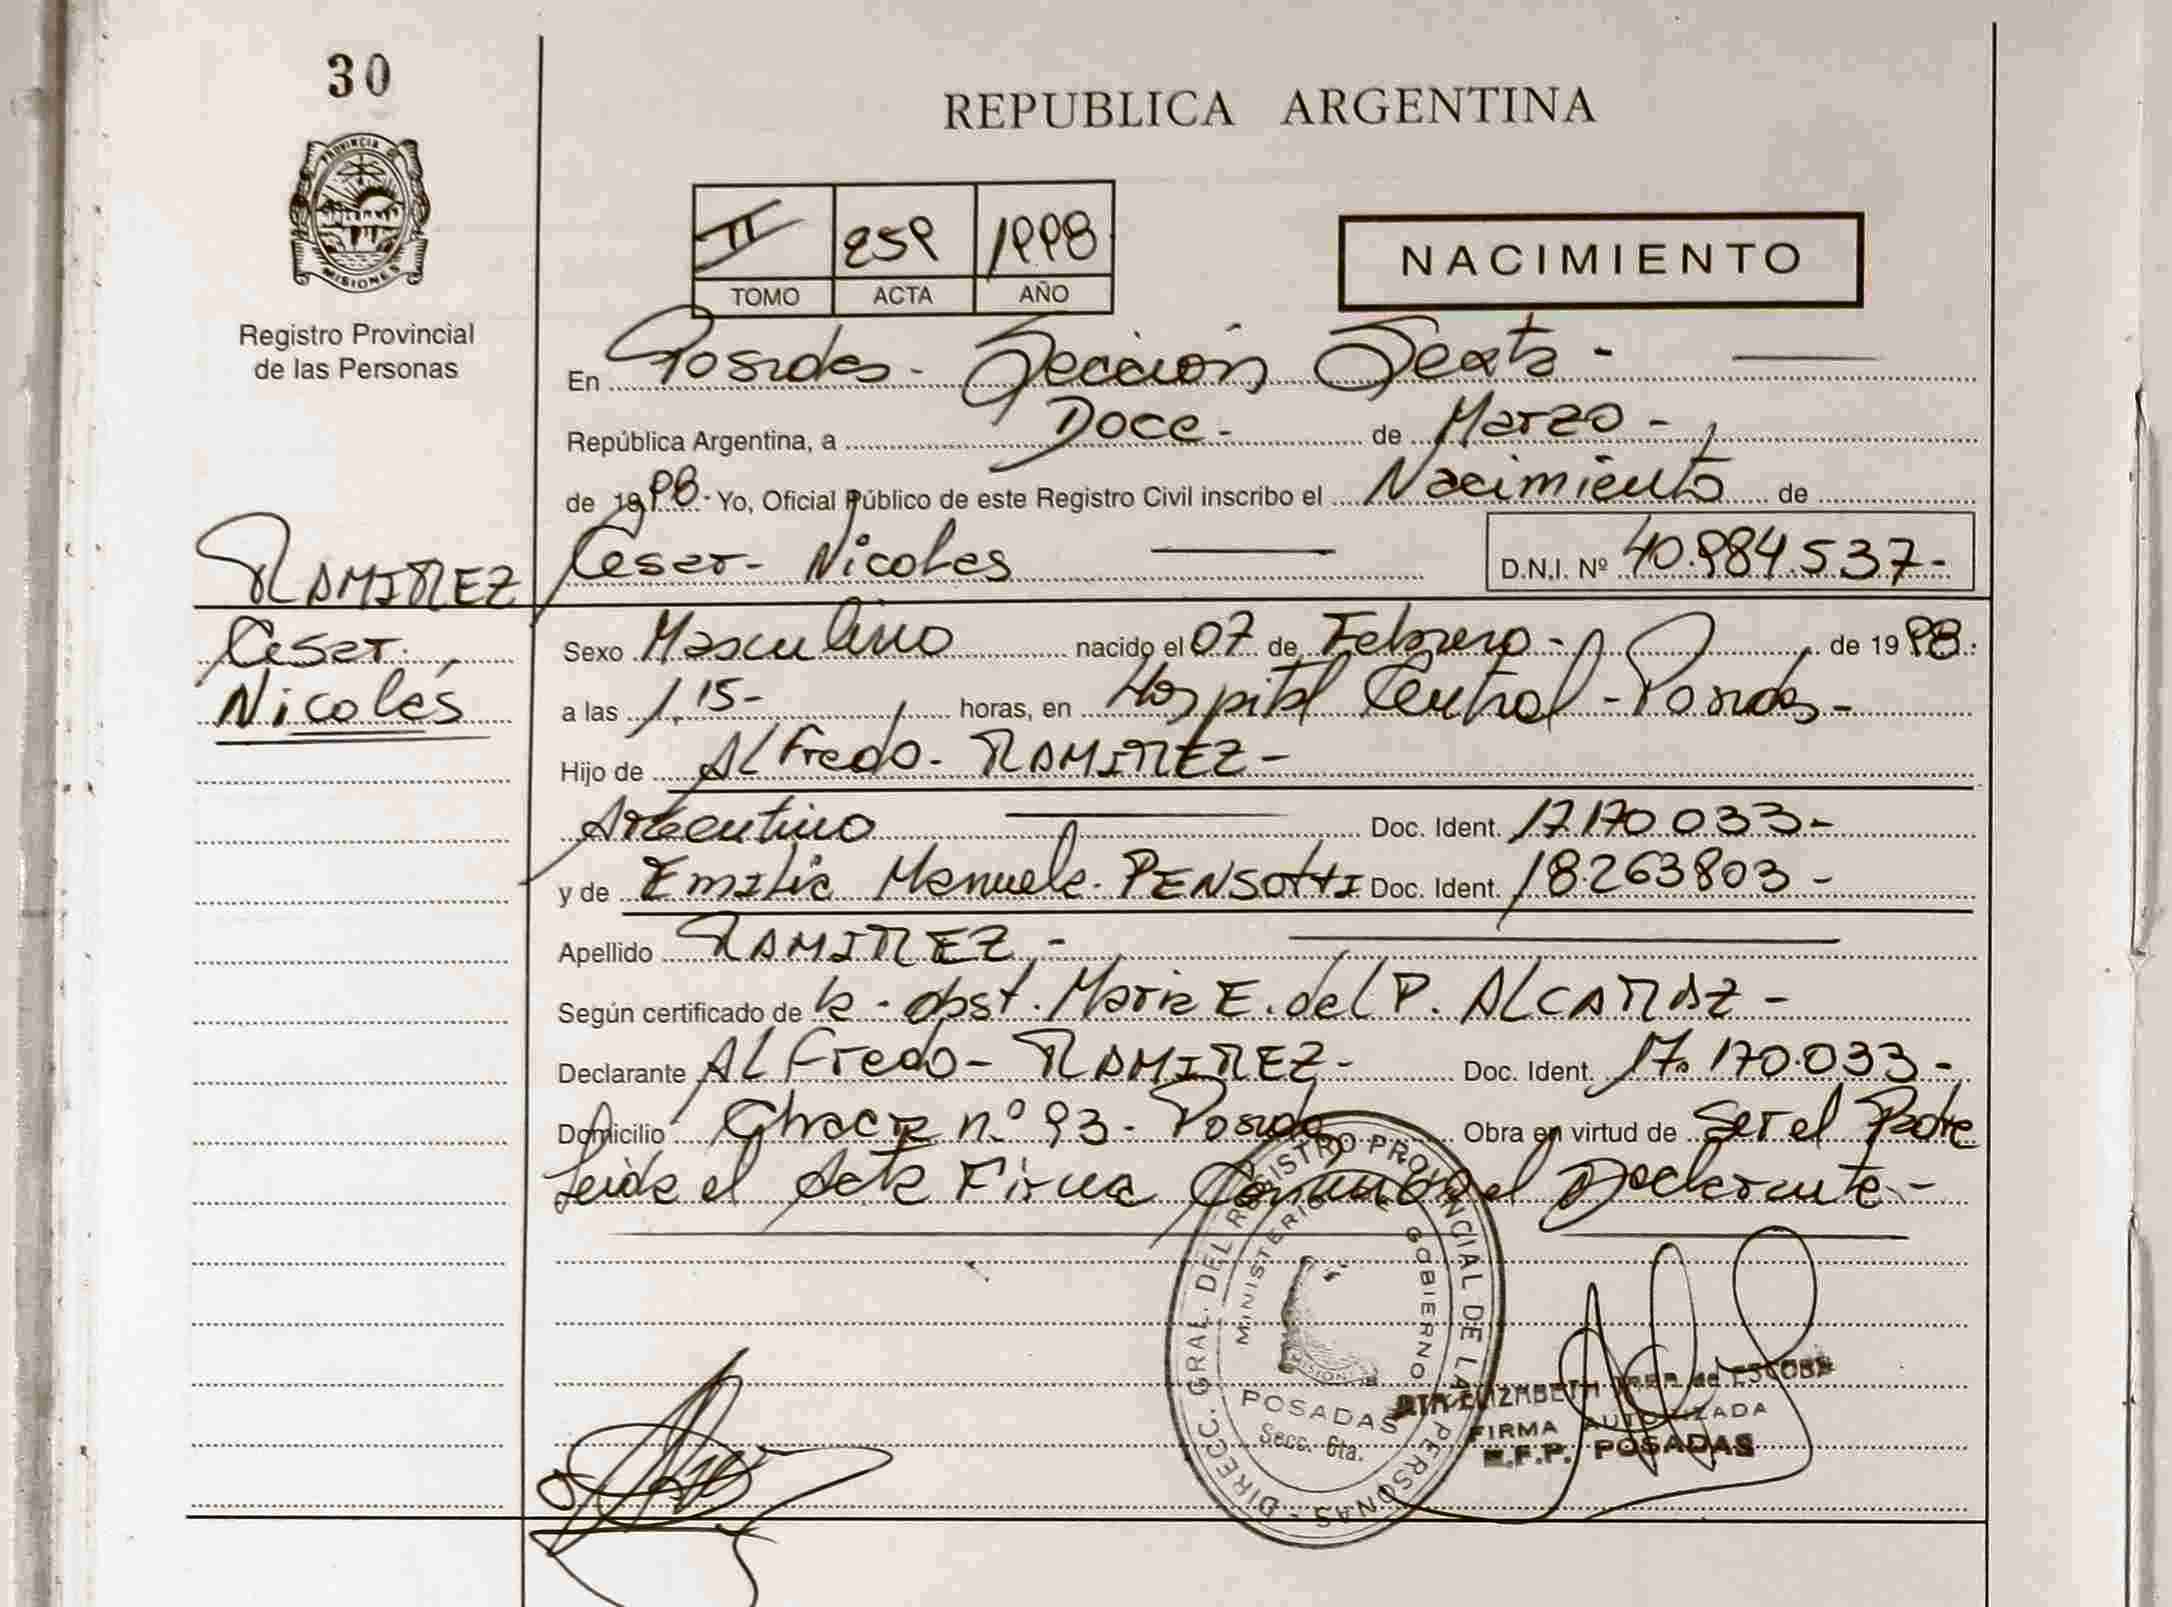 30
REPUBLICA ARGENTINA
PROVINCIA DE
MISIONES
Registro Provincial
de las Personas
II 259 1998
TOMO ACTA AÑO
NACIMIENTO
En Posadas - Sección Sexta -
República Argentina, a Doce - de Marzo -
de 1998 - Yo, Oficial Público de este Registro Civil inscribo el Nacimiento de
Cesar - Nicolas D.N.I. Nº 40.984.537 -
RAMIREZ
Cesar
Nicolás
Sexo Masculino nacido el 07 de Febrero - de 1998.
a las 1,15 - horas, en Hospital Central - Posadas -
Hijo de Alfredo - RAMIREZ -
Argentino Doc. Ident. 17.170.033 -
y de Emilia Manuela - PENSOTTI Doc. Ident. 18.263803 -
Apellido RAMIREZ -
Según certificado de la - obst. Maria E. del P. ALCARAZ -
Declarante Alfredo - RAMIREZ - Doc. Ident. 17.170.033 -
Domicilio Chacra n.º 93 - Posadas Obra en virtud de Ser el Padre
Leida el Acta Firma Conmigo el Declarante -
DIRECC. GRAL. DEL REGISTRO PROVINCIAL DE LAS PERSONAS
MINISTERIO DE GOBIERNO
MISIONES
POSADAS
Secc. 6ta.
ELIZABETH de ESCOBAR
FIRMA AUTORIZADA
POSADAS